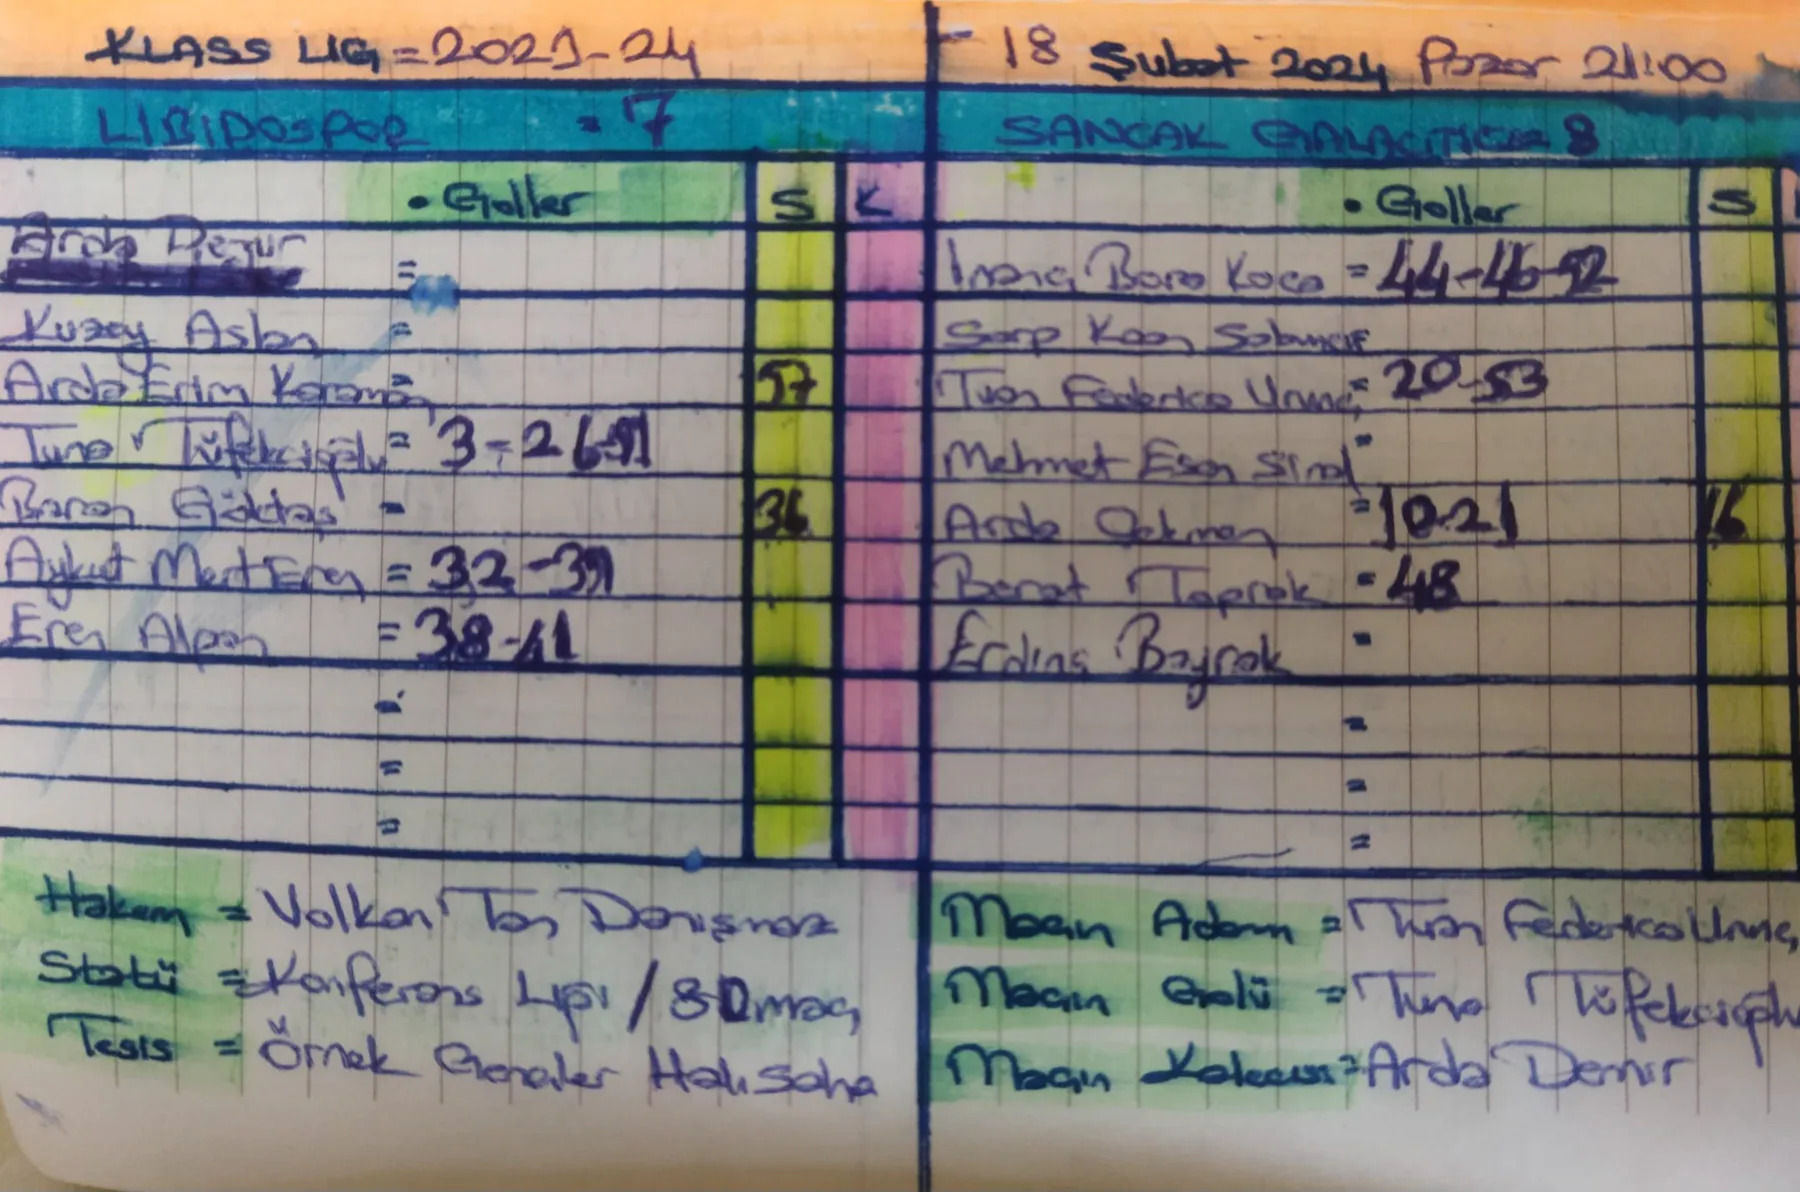 KLASS LIG = 2023-24
- 18 Şubat 2024 Pazar 21:00
LIBIDOSPOR = 7
SANCAK GALACTICOS 8
• Goller S K
• Goller S
Arda Demir =
İnanç Bora Koca = 44-46-52
Kuzey Aslan =
Sarp Kaan Sabancı
Arda Erim Karaman = 57
Tuan Federico Urunç = 20-53
Tuna Tüfekcioğlu = 3-26-51
Mehmet Esen Sinal =
Baran Göktaş = 36
Arda Çakman = 10-21 16
Aykut Mert Eren = 32-39
Berat Toprak = 48
Eren Alpan = 38-41
Erdinç Bayrak =
=
=
=
=
=
=
Hakem = Volkan Tan Danışmaz
Statü = Konferans Ligi / 80 maç
Tesis = Örnek Gençler Halı Saha
Maçın Adamı = Tuan Federico Urunç
Maçın Golü = Tuna Tüfekcioğlu
Maçın Kalecisi = Arda Demir